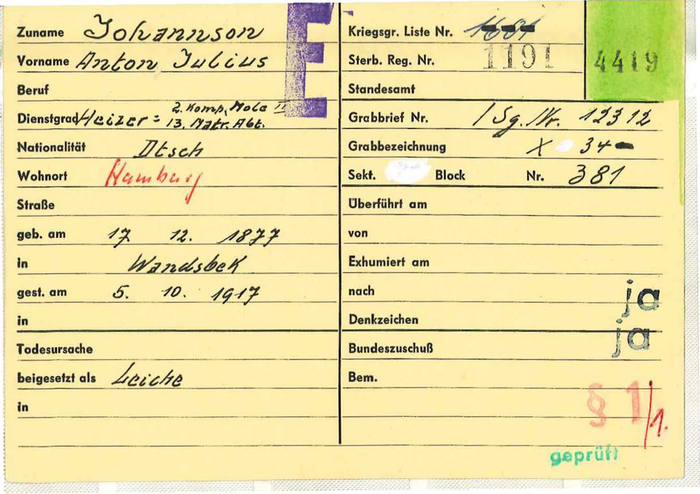 Zuname Johannson
Vorname Anton Julius
Beruf
Dienstgrad Heizer = 2. Komp. Mole II
13. Matr. Abt.
Nationalität Dtsch
Wohnort Hamburg
Straße
geb. am 17 12. 1877
in Wandsbek
gest. am 5. 10. 1917
in
Todesursache
beigesetzt als Leiche
in
E
Kriegsgr. Liste Nr.
Sterb. Reg. Nr. 1191
4419
Standesamt
Grabbrief Nr. / Sg. Nr. 12312
Grabbezeichnung X 34
Sekt. Block Nr. 381
Überführt am
von
Exhumiert am
nach ja
Denkzeichen
Bundeszuschuß ja
Bem.
§ 1/1.
geprüft